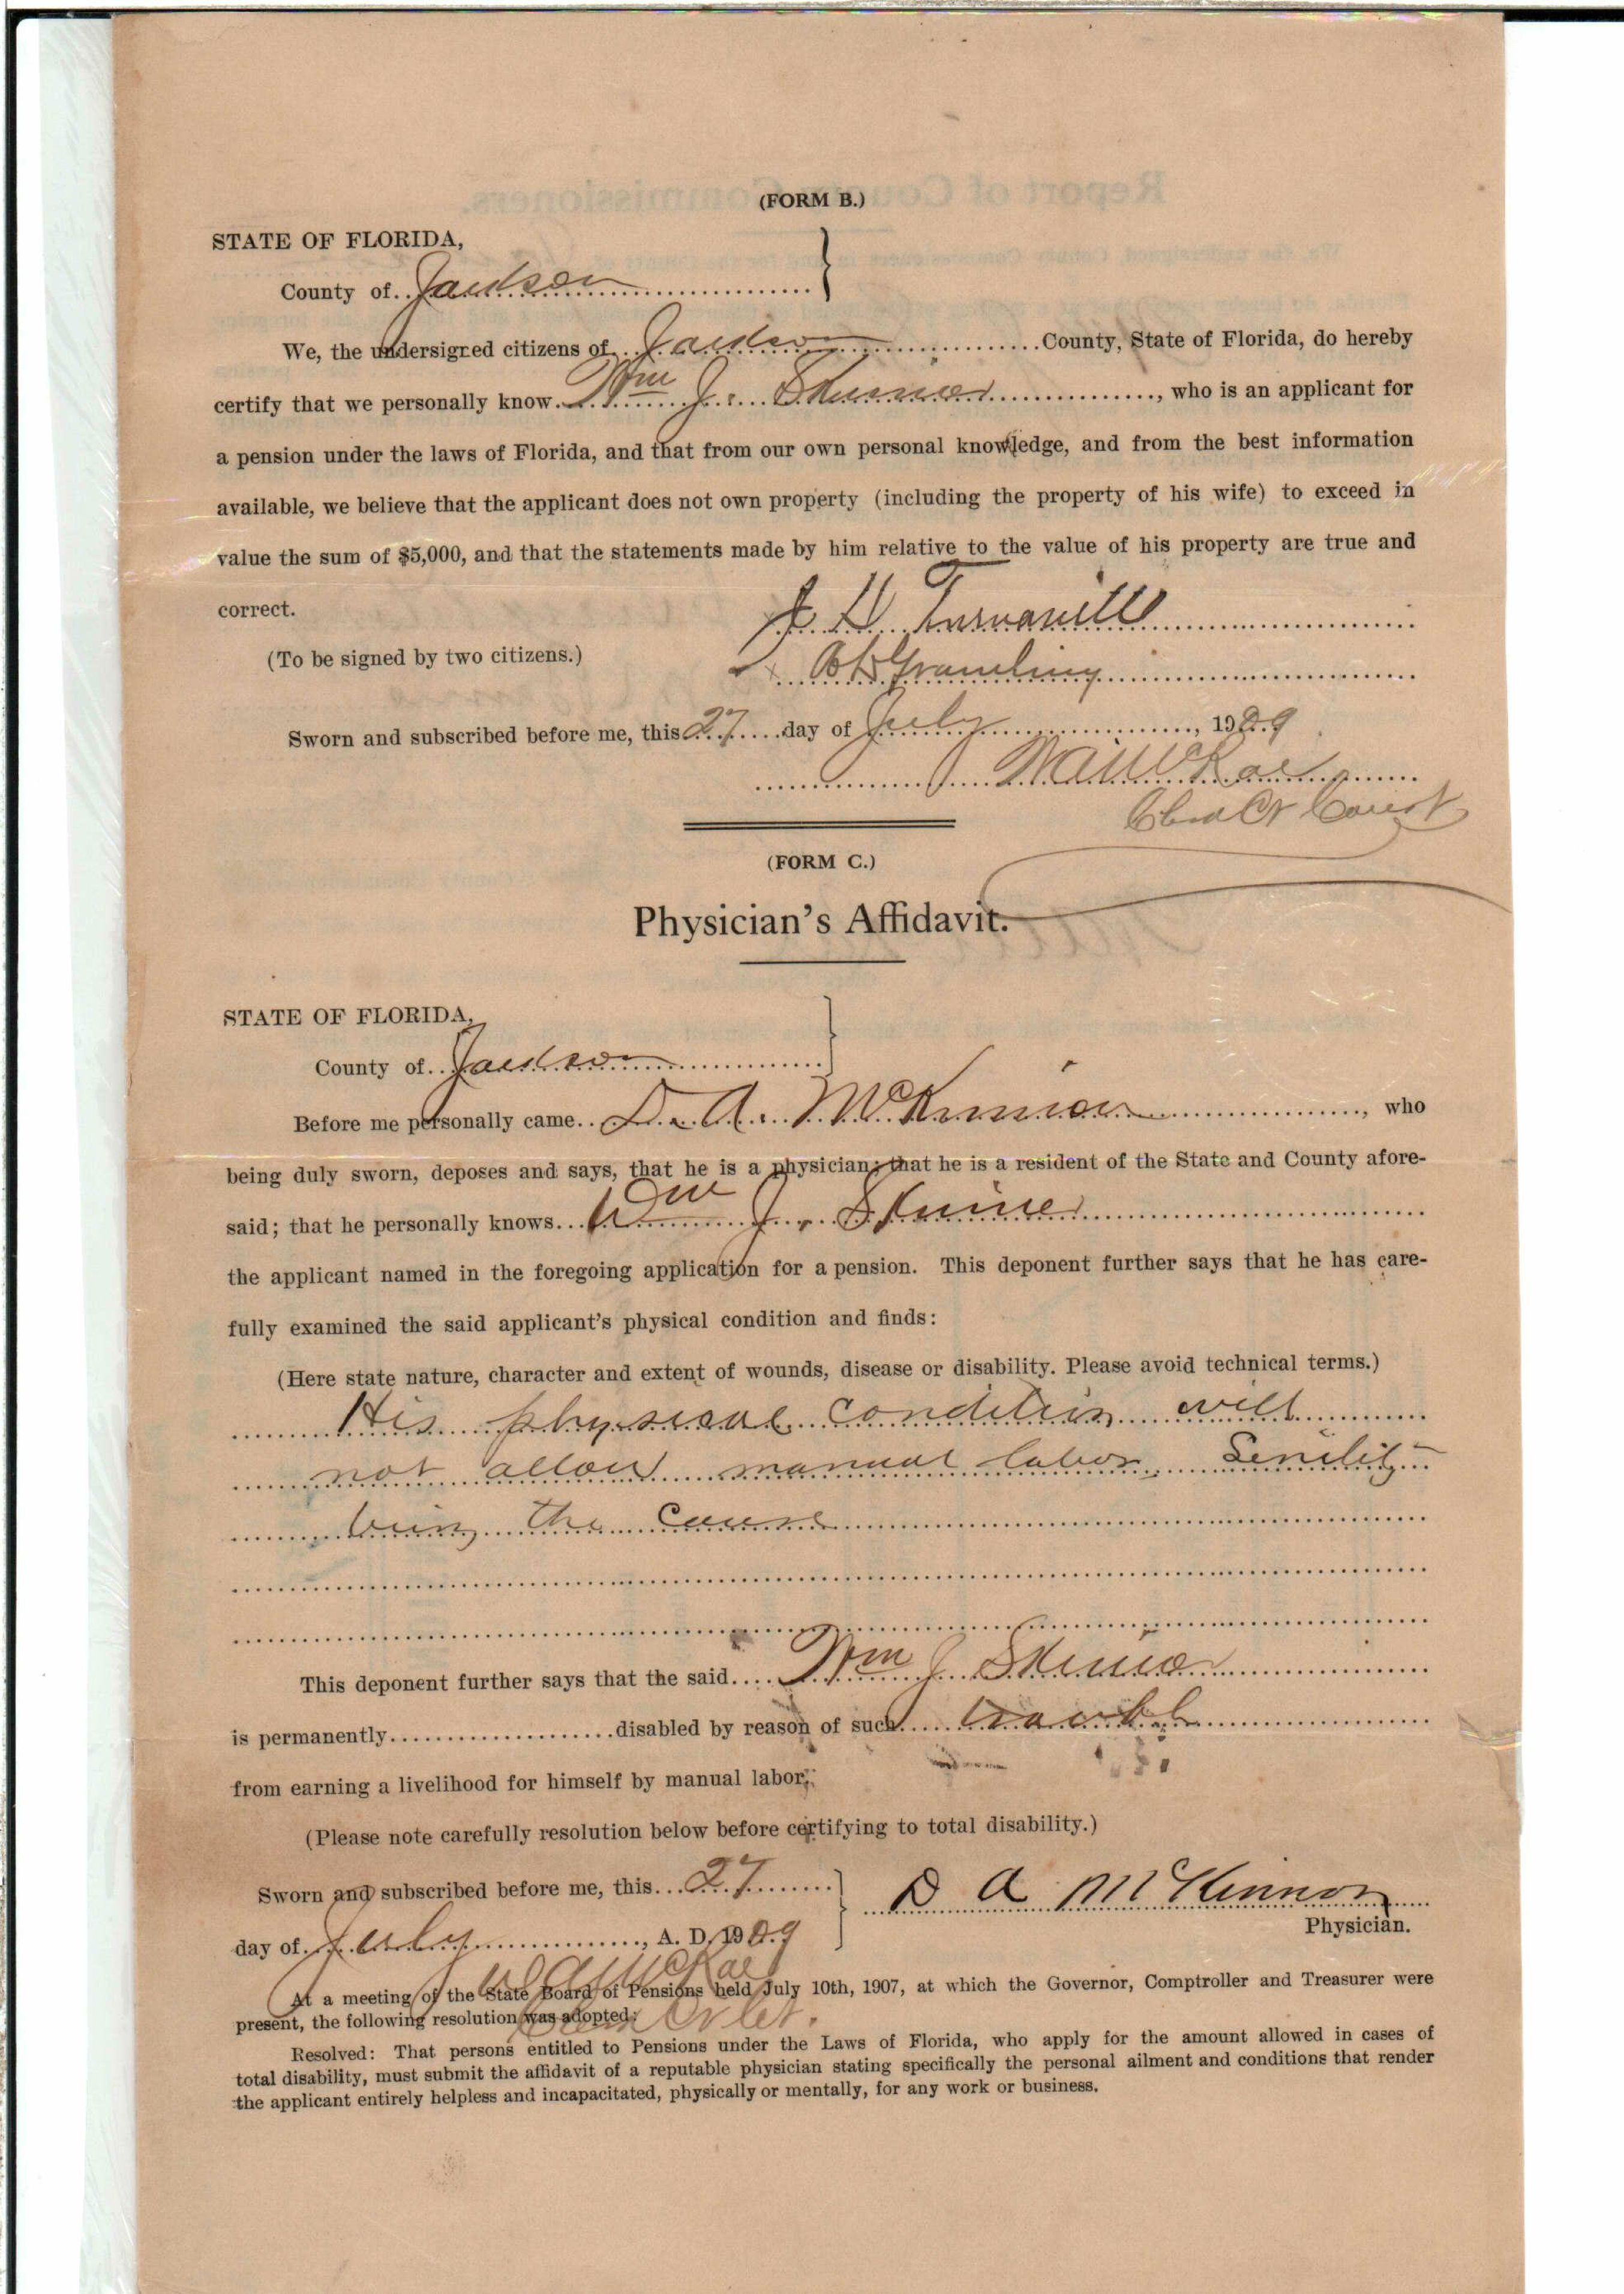 (FORM B.)
STATE OF FLORIDA,
County of Jackson
We, the undersigned citizens of Jackson County, State of Florida, do hereby
certify that we personally know Wm J. Skinner, who is an applicant for
a pension under the laws of Florida, and that from our own personal knowledge, and from the best information
available, we believe that the applicant does not own property (including the property of his wife) to exceed in
value the sum of $5,000, and that the statements made by him relative to the value of his property are true and
correct.
J D Turnavill
(To be signed by two citizens.)
Gramling
Sworn and subscribed before me, this 27 day of July, 1909
McRae
Clerk Ct Court
(FORM C.)
Physician's Affidavit.
STATE OF FLORIDA,
County of Jackson
Before me personally came D. A. McKinnon, who
being duly sworn, deposes and says, that he is a physician; that he is a resident of the State and County afore-
said; that he personally knows Wm J. Skinner
the applicant named in the foregoing application for a pension. This deponent further says that he has care-
fully examined the said applicant's physical condition and finds:
(Here state nature, character and extent of wounds, disease or disability. Please avoid technical terms.)
His physical condition will
not allow manual labor. Senility
being the cause
This deponent further says that the said Wm J Skinner
is permanently disabled by reason of such
from earning a livelihood for himself by manual labor.
(Please note carefully resolution below before certifying to total disability.)
Sworn and subscribed before me, this 27
D A McKinnon
Physician.
day of July, A. D. 1909
McRae
At a meeting of the State Board of Pensions held July 10th, 1907, at which the Governor, Comptroller and Treasurer were
present, the following resolution was adopted:
Resolved: That persons entitled to Pensions under the Laws of Florida, who apply for the amount allowed in cases of
total disability, must submit the affidavit of a reputable physician stating specifically the personal ailment and conditions that render
the applicant entirely helpless and incapacitated, physically or mentally, for any work or business.